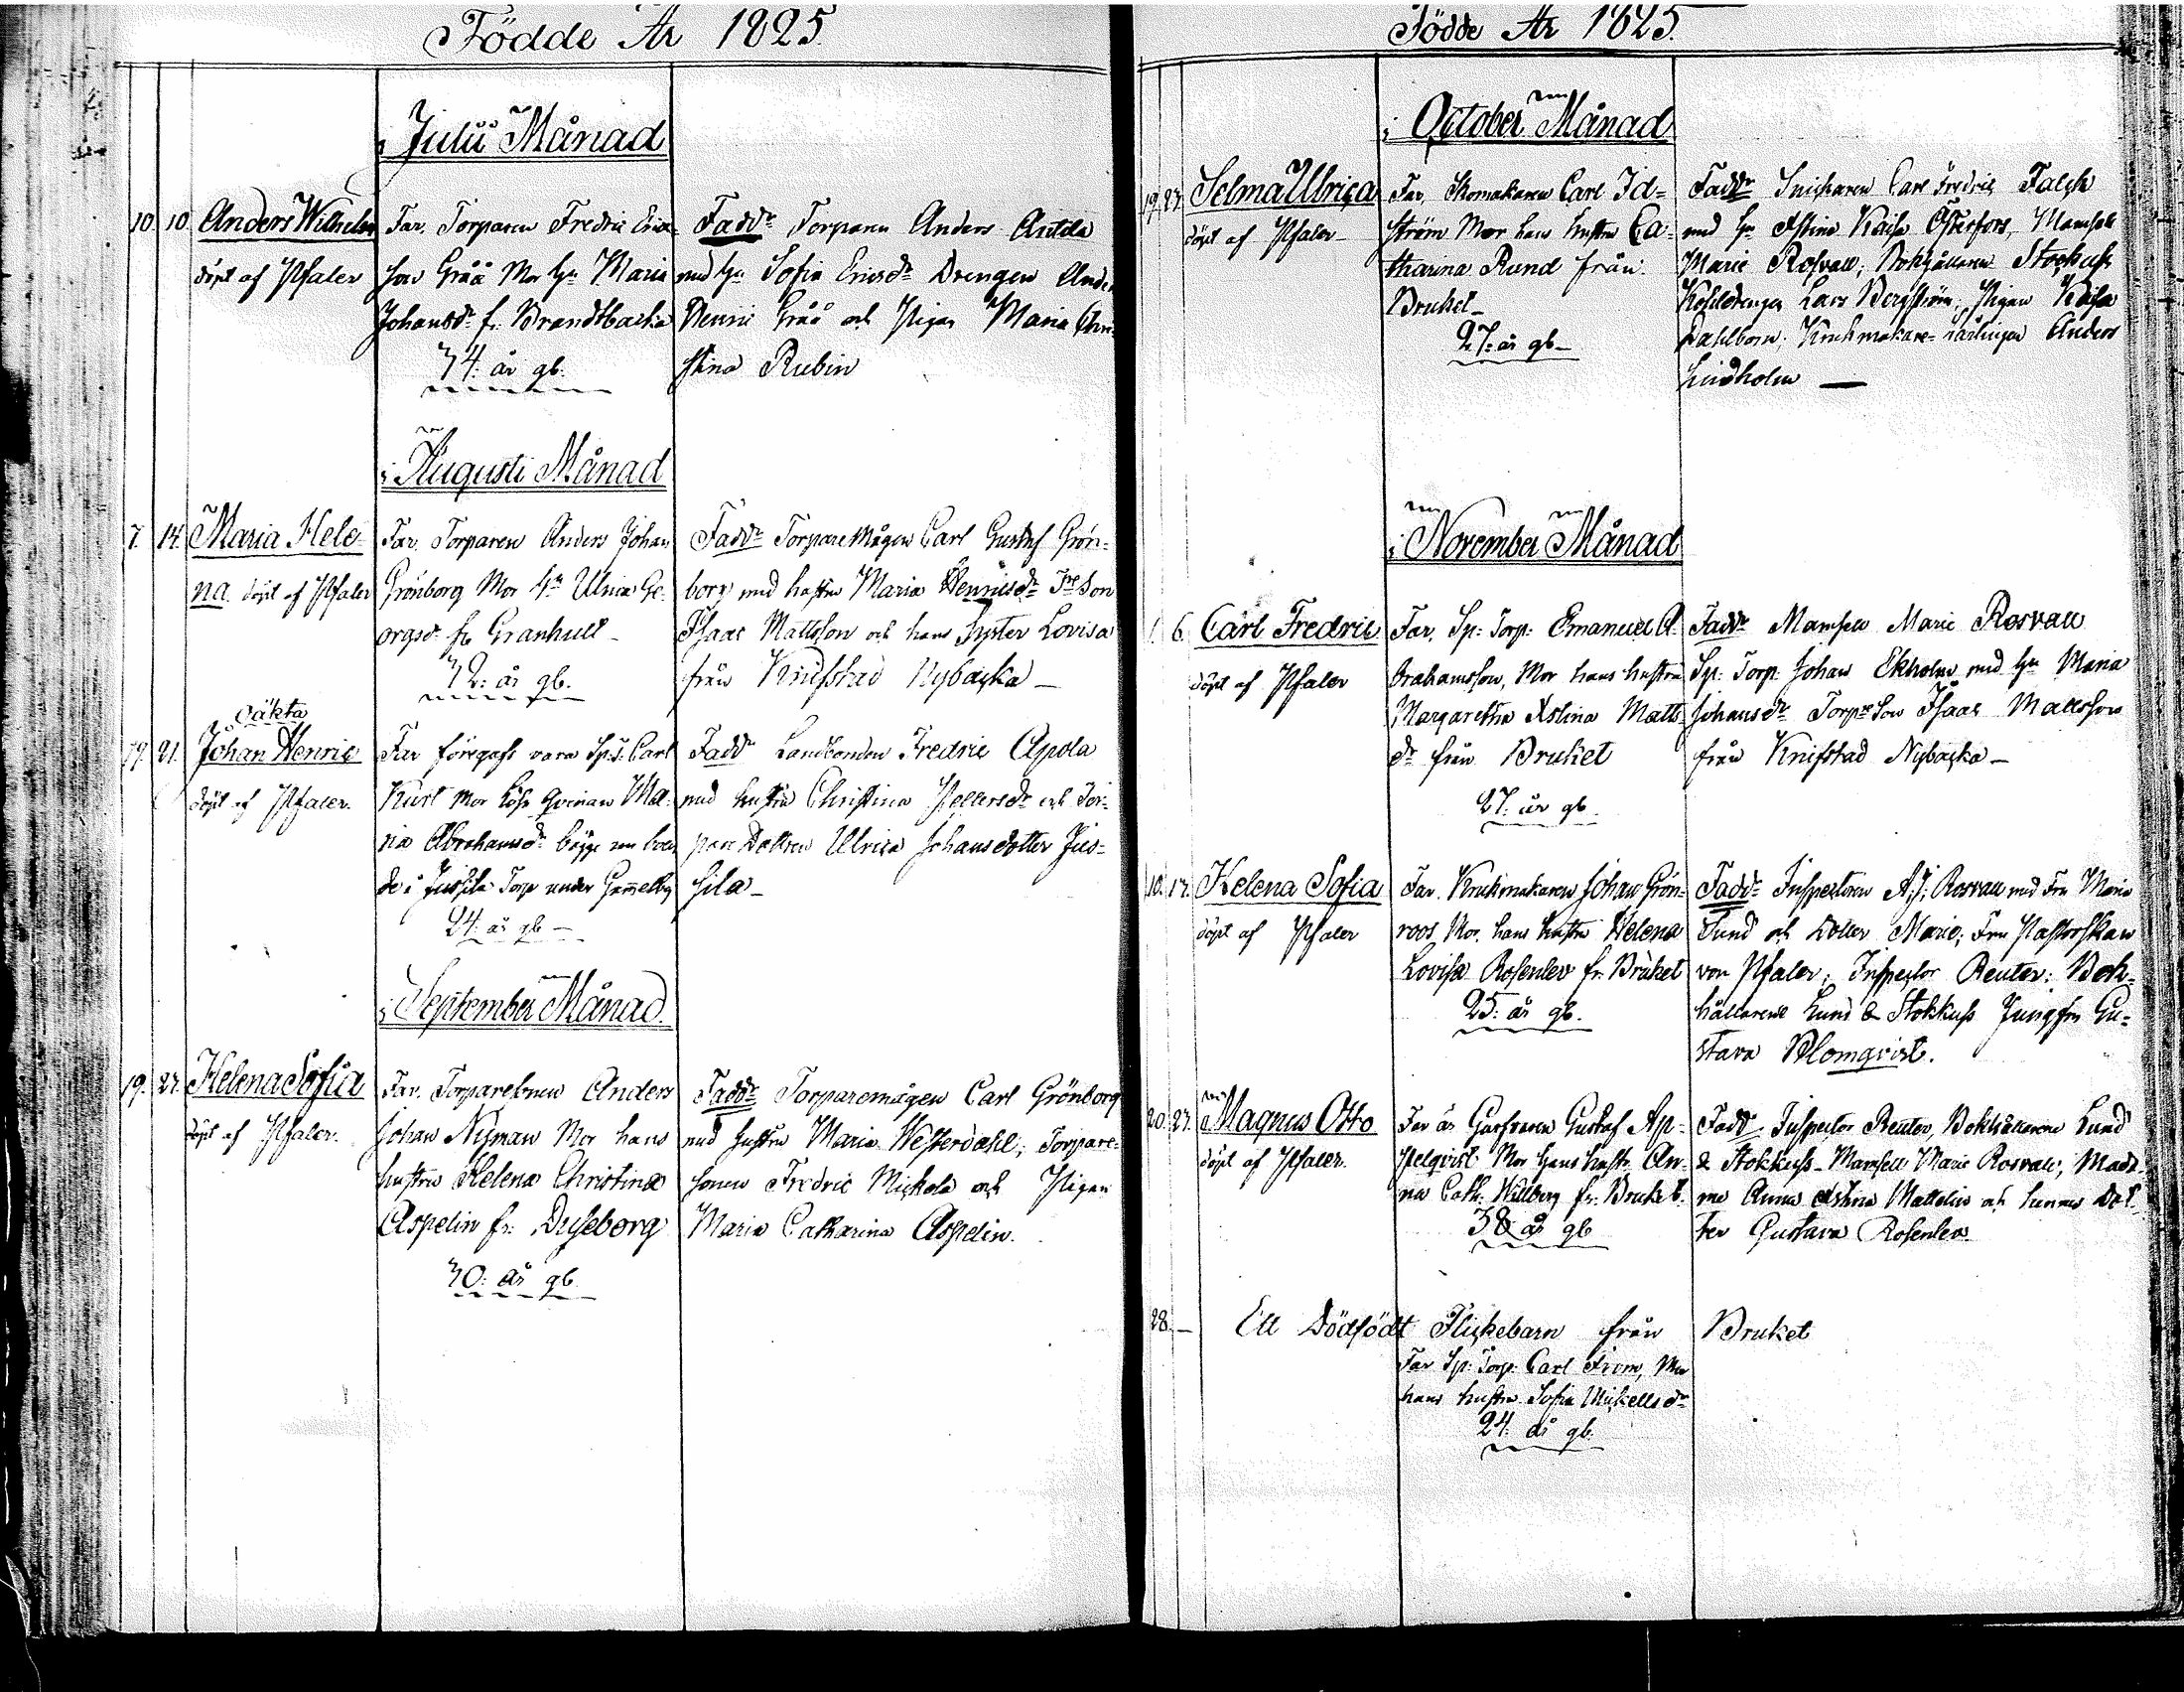 Födde År 1825.
i Julii Månad
10. 10. Anders Wilhelm
döpt af Pfaler
Far. Torparen Fredric Erics-
son Gråå Mor Hu Maria
Johansdr fr. Brandtbacka
34: år gb.
Faddr Torparen Anders Anttila
med hu Sofia Ericsdr Drengen Anders
Henric Gråå och Pigan Maria Chri-
stina Rubin
i Augusti Månad
7. 14. Maria Hele
na. döpt af Pfaler
Far. Torparen Anders Johan
Grönborg Mor Hu Ulrica Ge-
orgsdr fr Granhult
32: år gb.
Faddr Torpare Mågen Carl Gustaf Grön-
borg med hustru Maria Henricsdr Son
Isaac Mattsson och hans Syster Lovisa
från Knifstad Nybacka
Oäkta
19. 21. Johan Henric
döpt af Pfaler.
Far föregafs vara Carl
Kurt Mor Lösa Qvinnan Ma-
ria Abrahamsdr bägge nu boen
de i Jussila Torp under Gammelby
24: år gb
Faddr Landbonden Fredric Apola
med hustru Christina Pettersdr och Tor-
pare Dottren Ulrica Johansdotter Jus-
sila
i September Månad.
19. 27. Helena Sofia
döpt af Pfaler.
Far. Torparesonen Anders
Johan Nyman Mor hans
hustru Helena Christina
Aspelin fr: Duseborg
30: år gb
Faddr Torparemågen Carl Grönborg
med hustru Maria Westerdahl; Torpare-
sonen Fredric Mickola och Pigan
Maria Catharina Aspelin.
Födde År 1825.
i October Månad
19. 27. Selma Ulrica
döpt af Pfaler
Far, Skomakaren Carl Id-
ström Mor hans hustru Ca-
tharina Rund från
Bruket
27: år gb
Faddr Snickaren Carl Fredric Falck
med hu Stina Kaisa Österfors, Mamsell
Marie Rosvall; Bokhållaren Stockuss
Kohldrengen Lars Bergström; Pigan Kaisa
Dahlborn; Krukmakare-Lärlingen Anders
Lindholm
i November Månad
1. 6. Carl Fredric
döpt af Pfaler
Far. Sp: Torp: Emanuel A-
brahamsson, Mor hans hustru
Margaretha Xstina Matts
dr från Bruket
27: år gb
Faddr Mamsell Marie Rosvall
Sp: Torp: Johan Ekholm med hu Maria
Johansdr Son Isaac Mattsson
från Knifstad Nybacka
10. 17. Helena Sofia
döpt af Pfaler
Far. Krukmakaren Johan Grön-
roos Mor. hans hustru Helena
Lovisa Rosenlev fr. Bruket
25: år gb.
Faddr Inspectoren A: J: Rosvall med Fru Maria
Sund och Dotter Marie; Fru Pastorskan
von Pfaler; Inspector Reuter: Bok-
hållarene Lund & Stokkuss Jungfru Gu-
stava Blomqvist.
20. 27. Magnus Otto
döpt af Pfaler.
Far är Garfvaren Gustaf Ap-
pelqvist Mor hans hustru An-
na Cath: Willberg fr: Bruket.
38 år gb
Faddr Inspector Reuter, Bokhållarene Lund
& Stokkuss Mamsell Marie Rosvall, Mada-
me Anna Xstina Mattelin och hennes Dot-
ter Gustava Rosenlev
28. Ett Dödfödt Flickebarn från Bruket
Far Sp: Torp: Carl Strom, Mor
hans hustru Sofia Mickellsdr
24: år gb.